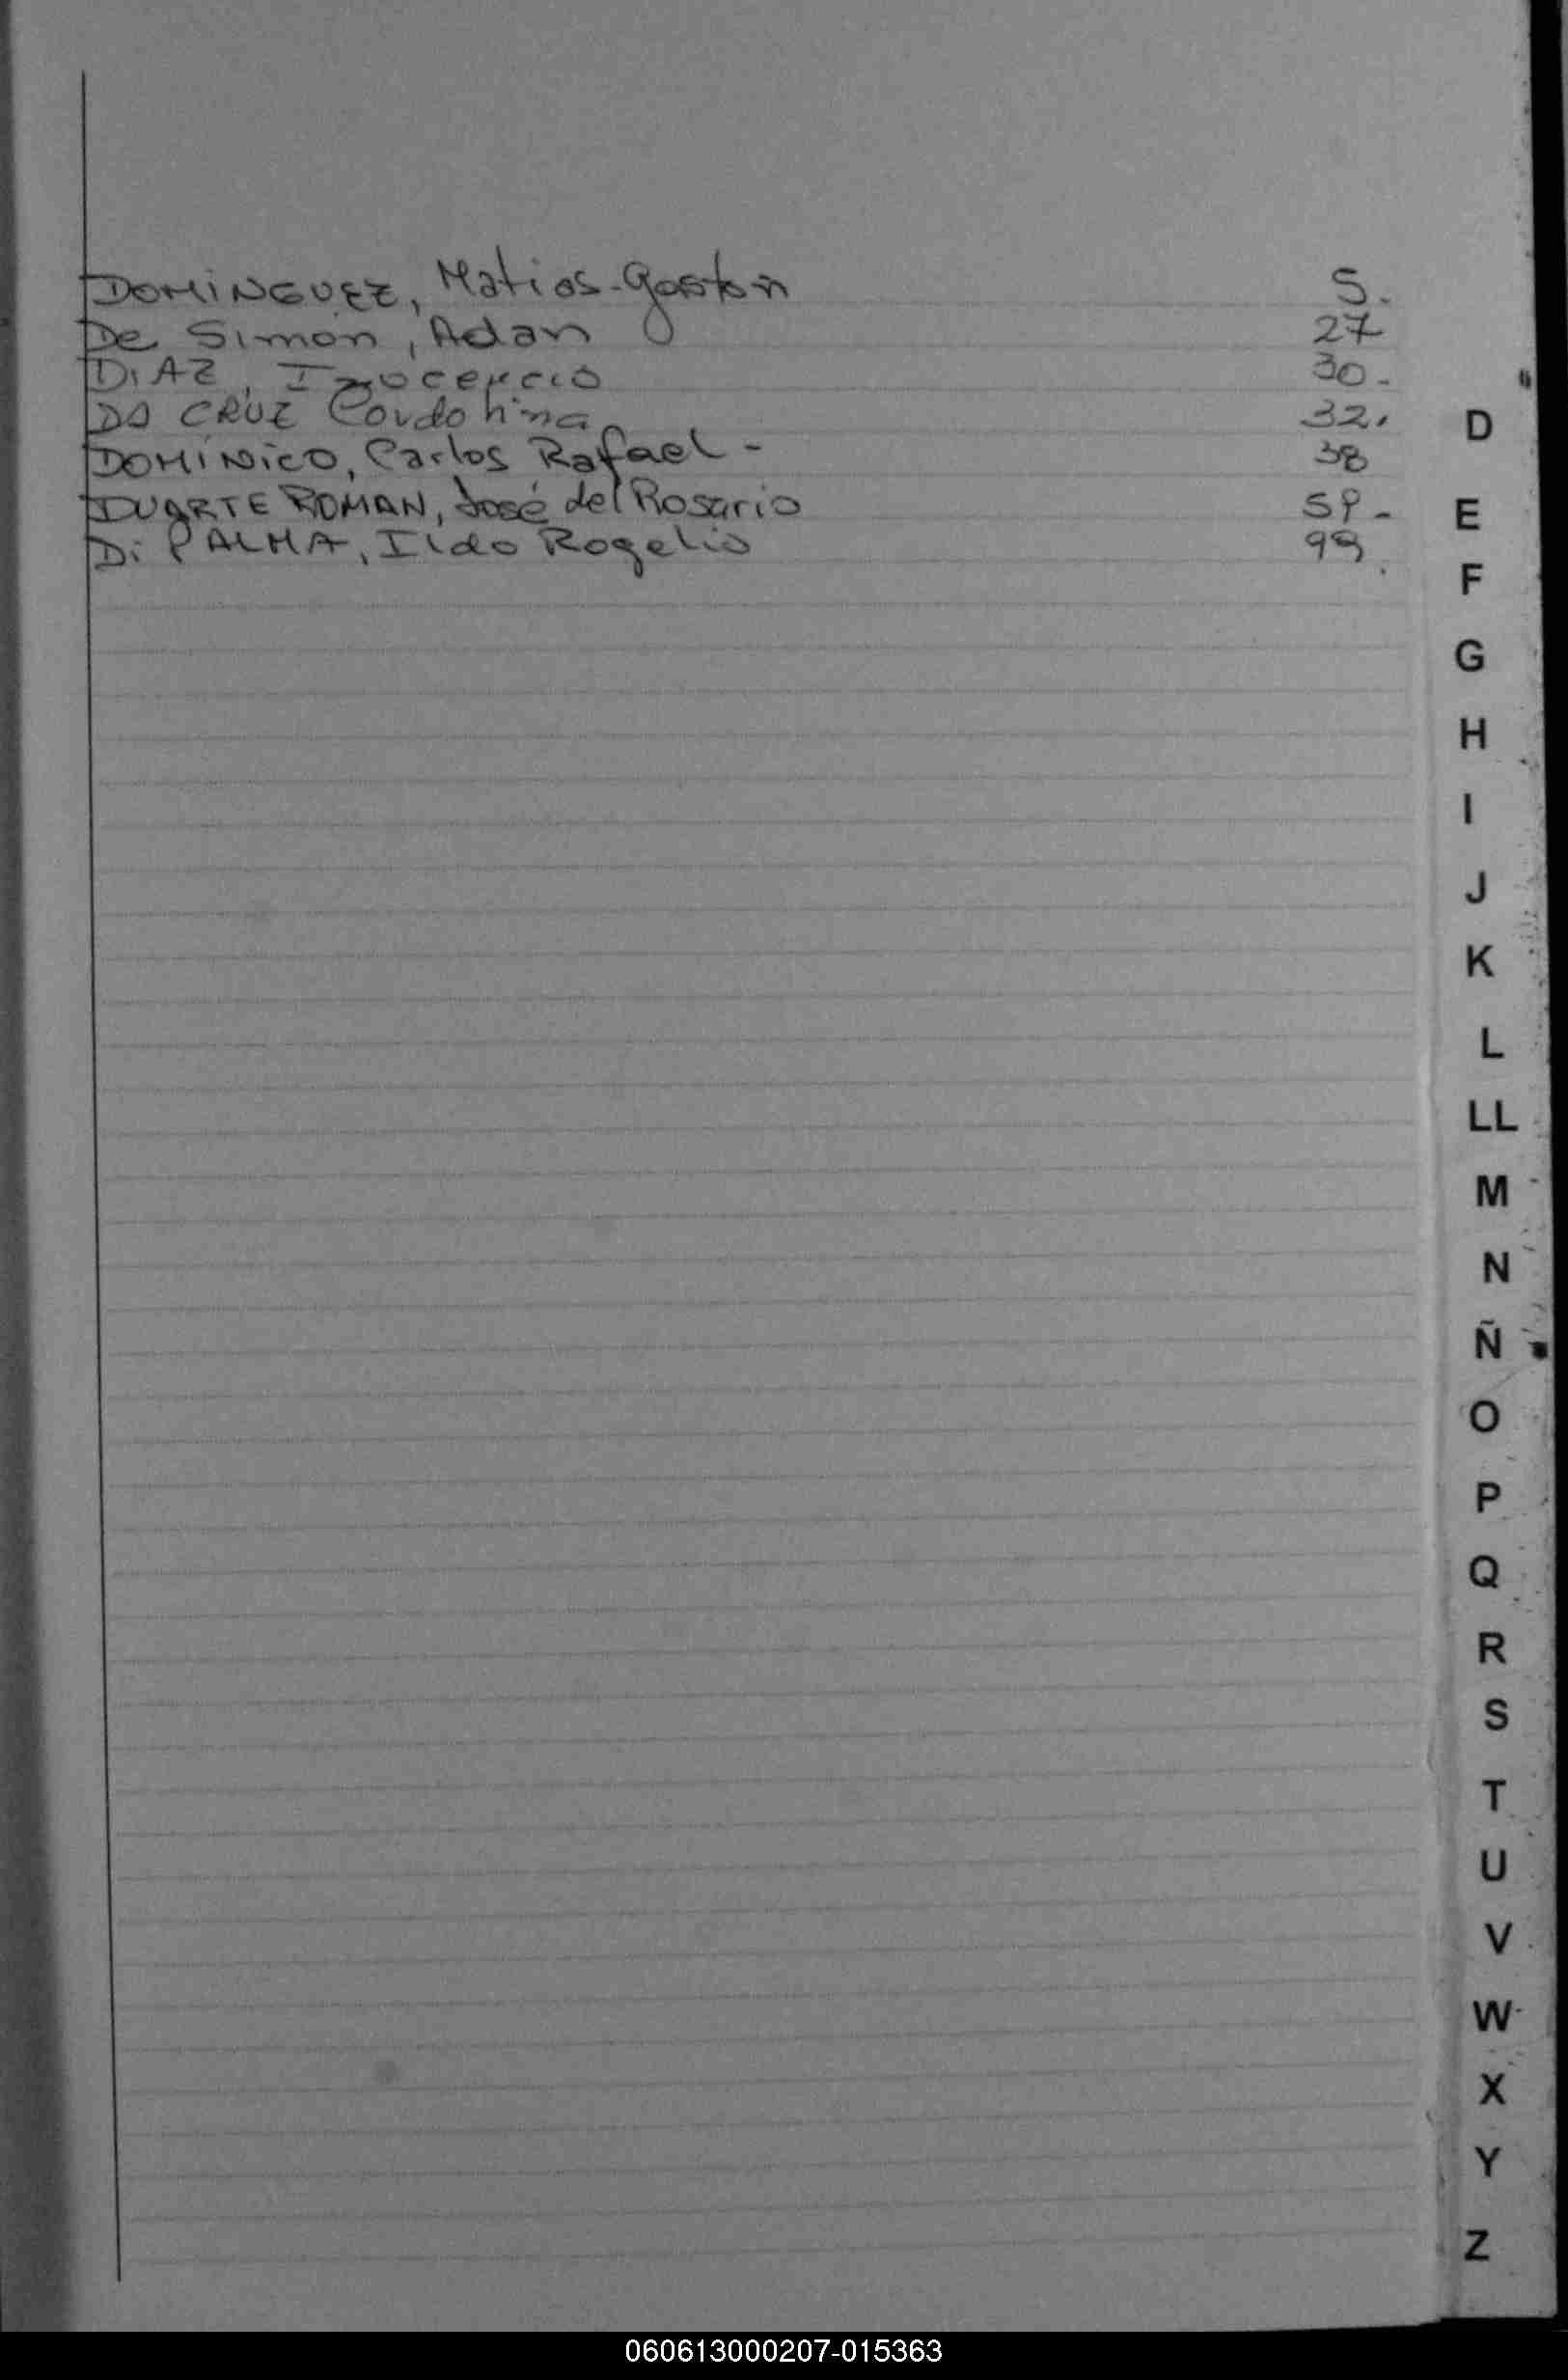 DOMINGUEZ, Matias-Gaston 5.
De Simón, Adan 27
DiAZ, Inocencio 30-
DA CRUZ 32.
DOMINICO, Carlos Rafael - 38
DUARTE ROMAN, José del Rosario 59-
Di PALMA, Ildo Rogelio 99.
D
E
F
G
H
I
J
K
L
LL
M
N
Ñ
O
P
Q
R
S
T
U
V
W
X
Y
Z
060613000207-015363